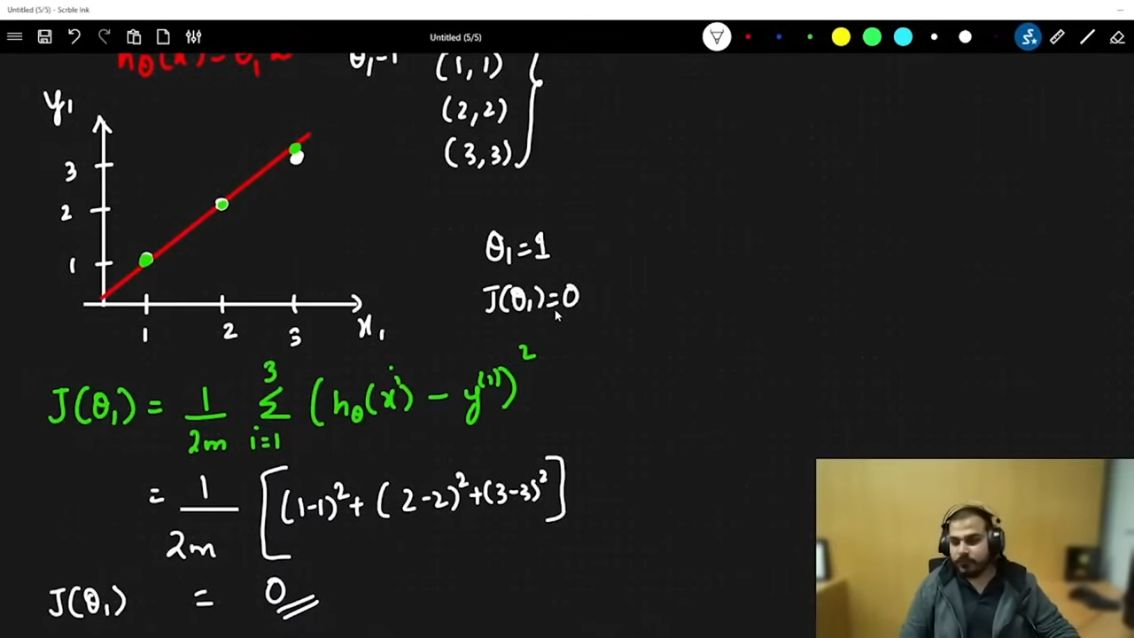 Untitled (5/5) - Scrble Ink
Untitled (5/5)
hθ(x) = θ₁ x
θ₁=1
(1, 1)
(2, 2)
(3, 3)
y₁
3
2
1
1 2 3 x₁
θ₁ = 1
J(θ₁) = 0
J(θ₁) = 1/2m Σ_{i=1}^{3} (hθ(xⁱ) - y⁽ⁱ⁾)²
= 1/2m [(1-1)² + (2-2)² + (3-3)²]
J(θ₁) = 0